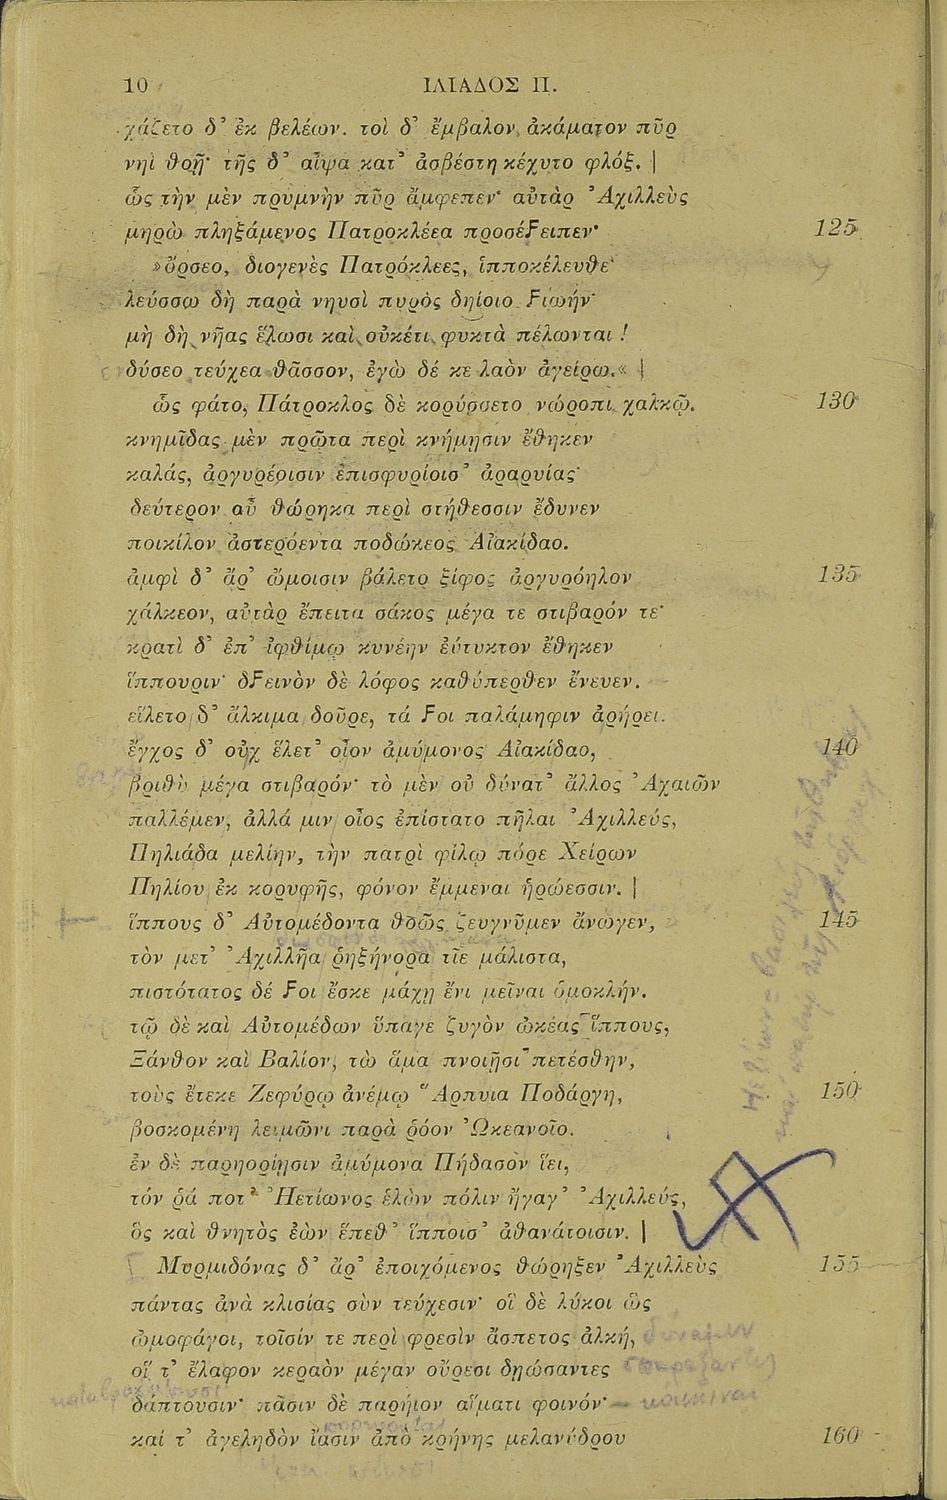 10 ΙΛΙΑΔΟΣ Π.
χάζετο δ’ ἐκ βελέων. τοὶ δ’ ἔμβαλον ἀκάματον πῦρ
νηὶ θοῇ· τῆς δ’ αἶψα κατ’ ἀσβέστη κέχυτο φλόξ. |
ὣς τὴν μὲν πρυμνὴν πῦρ ἄμφεπεν· αὐτὰρ Ἀχιλλεὺς
μηρὼ πληξάμενος Πατροκλέεα προσέϝειπεν· 125
»ὄρσεο, διογενὲς Πατρόκλεες, ἱπποκέλευθε·
λεύσσω δὴ παρὰ νηυσὶ πυρὸς δηίοιο ϝιωήν·
μὴ δὴ νῆας ἕλωσι καὶ οὐκέτι φυκτὰ πέλωνται !
δύσεο τεύχεα θᾶσσον, ἐγὼ δέ κε λαὸν ἀγείρω.« |
ὣς φάτο, Πάτροκλος δὲ κορύσσετο νώροπι χαλκῷ. 130
κνημῖδας μὲν πρῶτα περὶ κνήμῃσιν ἔθηκεν
καλάς, ἀργυρέοισιν ἐπισφυρίοισ’ ἀραρυίας·
δεύτερον αὖ θώρηκα περὶ στήθεσσιν ἔδυνεν
ποικίλον ἀστερόεντα ποδώκεος Αἰακίδαο.
ἀμφὶ δ’ ἄρ’ ὤμοισιν βάλετο ξίφος ἀργυρόηλον 135
χάλκεον, αὐτὰρ ἔπειτα σάκος μέγα τε στιβαρόν τε·
κρατὶ δ’ ἐπ’ ἰφθίμῳ κυνέην ἐύτυκτον ἔθηκεν
ἵππουριν· δϝεινὸν δὲ λόφος καθύπερθεν ἔνευεν.
εἵλετο δ’ ἄλκιμα δοῦρε, τά ϝοι παλάμηφιν ἀρήρει.
ἔγχος δ’ οὐχ ἕλετ’ οἶον ἀμύμονος Αἰακίδαο, 140
βριθὺ μέγα στιβαρόν· τὸ μὲν οὐ δύνατ’ ἄλλος Ἀχαιῶν
παλλέμεν, ἀλλά μιν οἶος ἐπίστατο πῆλαι Ἀχιλλεύς,
Πηλιάδα μελίην, τὴν πατρὶ φίλῳ πόρε Χείρων
Πηλίου ἐκ κορυφῆς, φόνον ἔμμεναι ἡρώεσσιν. |
ἵππους δ’ Αὐτομέδοντα θοῶς ζευγνῦμεν ἄνωγεν, 145
τὸν μετ’ Ἀχιλλῆα ῥηξήνορα τῖε μάλιστα,
πιστότατος δέ ϝοι ἔσκε μάχῃ ἔνι μεῖναι ὁμοκλήν.
τῷ δὲ καὶ Αὐτομέδων ὕπαγε ζυγὸν ὠκέας ἵππους,
Ξάνθον καὶ Βαλίον, τὼ ἅμα πνοιῇσι πετέσθην,
τοὺς ἔτεκε Ζεφύρῳ ἀνέμῳ Ἅρπυια Ποδάργη, 150
βοσκομένη λειμῶνι παρὰ ῥόον Ὠκεανοῖο.
ἐν δὲ παρηορίῃσιν ἀμύμονα Πήδασον ἵει,
τόν ῥά ποτ’ Ἠετίωνος ἑλὼν πόλιν ἤγαγ’ Ἀχιλλεύς,
ὃς καὶ θνητὸς ἐὼν ἕπεθ’ ἵπποισ’ ἀθανάτοισιν. |
Μυρμιδόνας δ’ ἄρ’ ἐποιχόμενος θώρηξεν Ἀχιλλεὺς 155
πάντας ἀνὰ κλισίας σὺν τεύχεσιν· οἳ δὲ λύκοι ὣς
ὠμοφάγοι, τοῖσίν τε περὶ φρεσὶν ἄσπετος ἀλκή,
οἵ τ’ ἔλαφον κεραὸν μέγαν οὔρεσι δῃώσαντες
δάπτουσιν· πᾶσιν δὲ παρήιον αἵματι φοινόν·
καί τ’ ἀγεληδὸν ἴασιν ἀπὸ κρήνης μελανύδρου 160